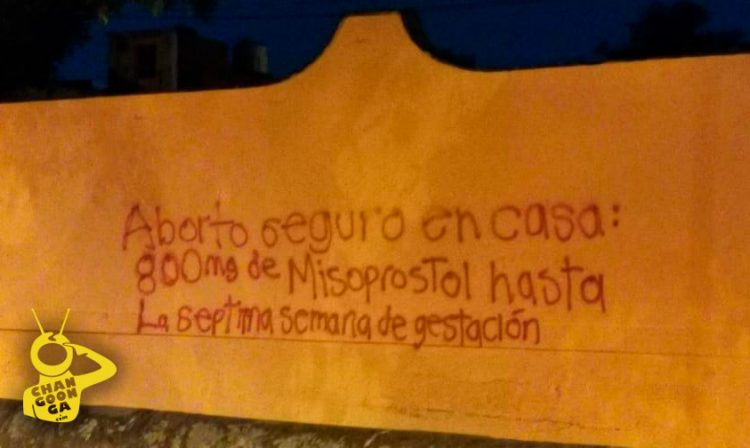 Aborto seguro en casa:
800mg de Misoprostol hasta
La septima semana de gestación
CHAN
GOON
GA
.com